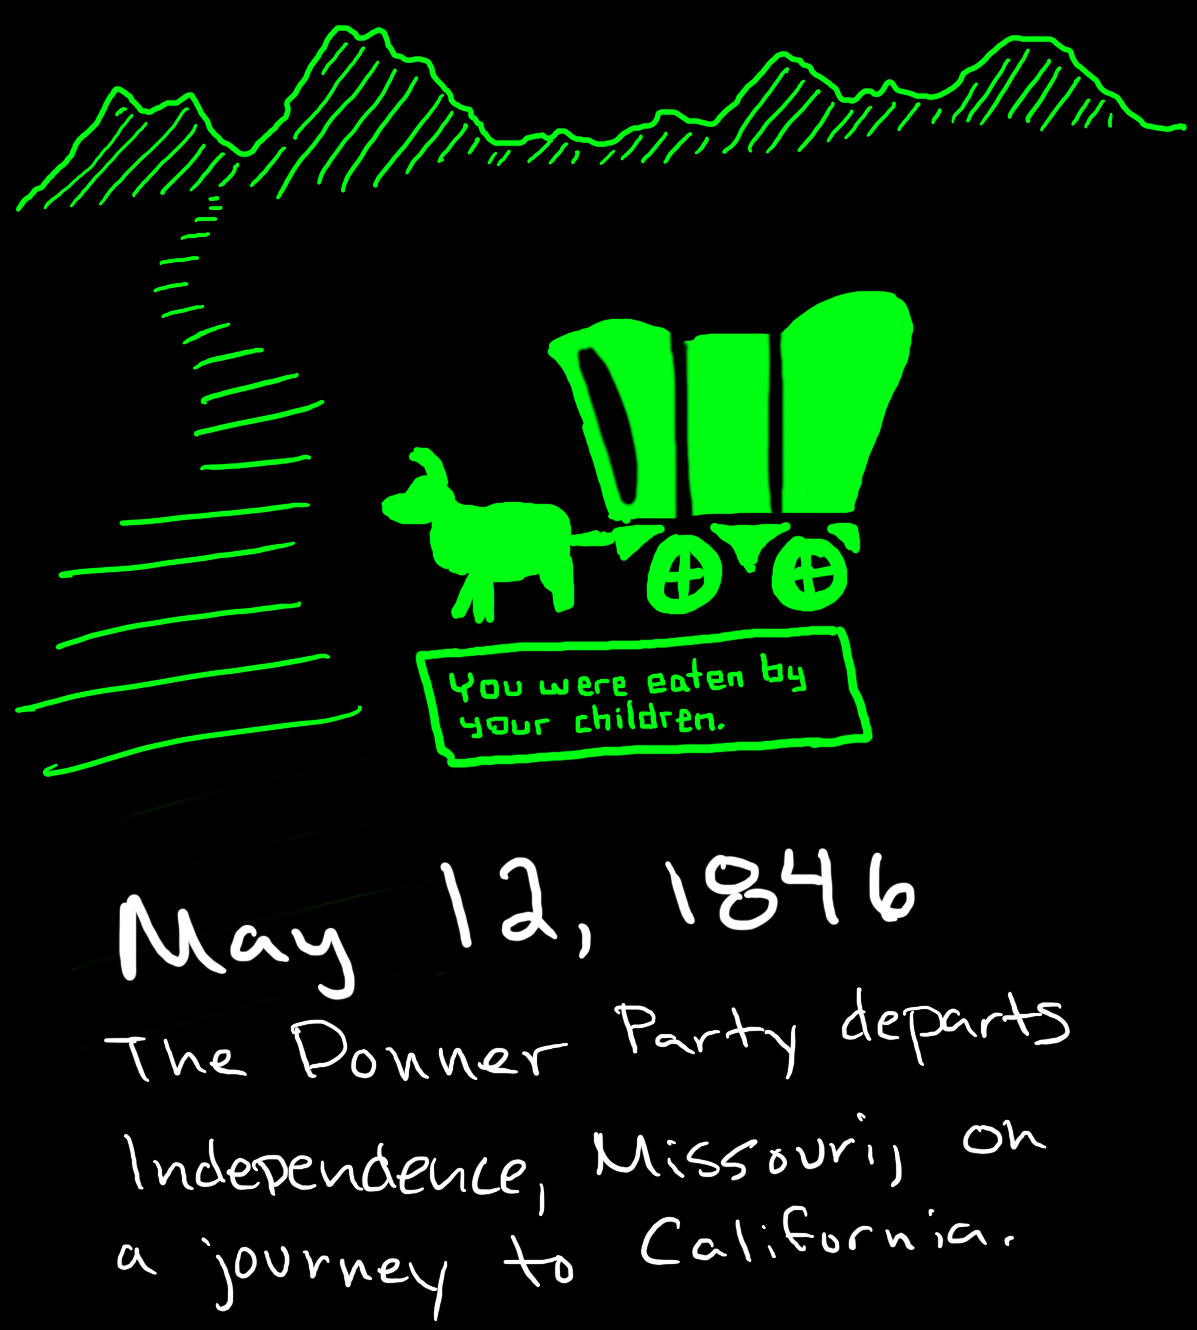 You were eaten by
your children.
May 12, 1846
The Donner Party departs
Independence, Missouri, on
a journey to California.